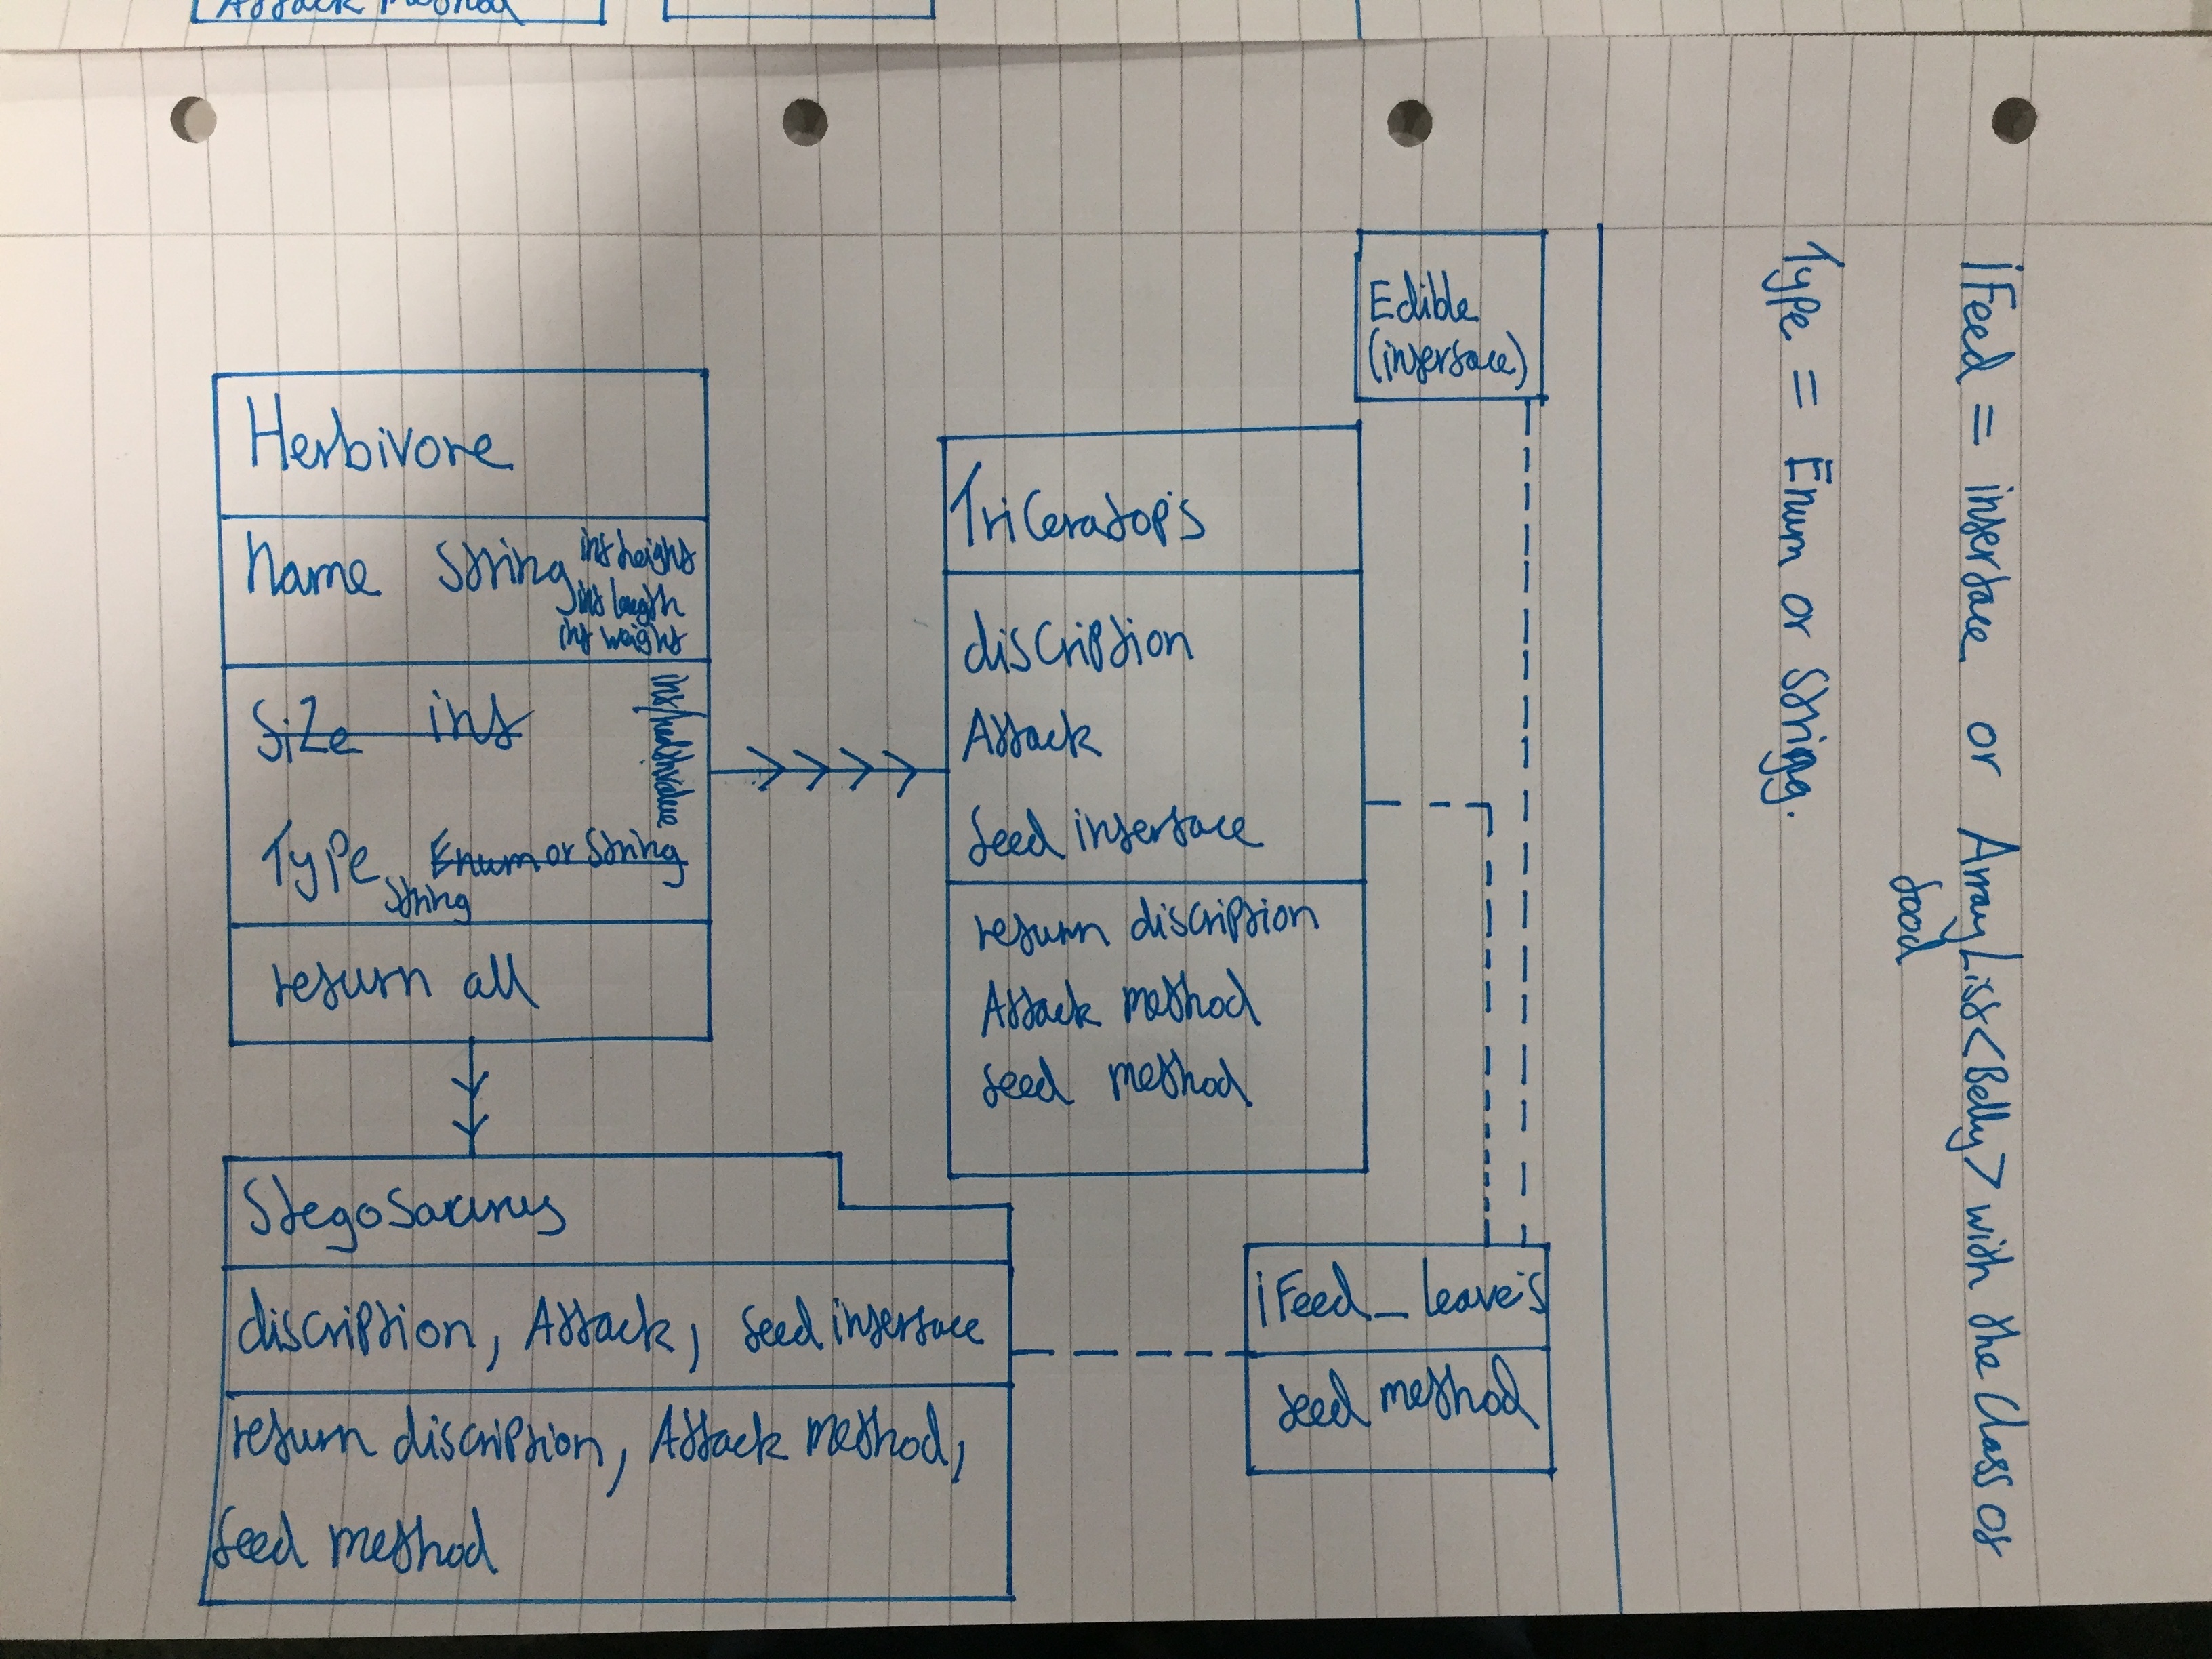 Attack method
Edible
(interface)
Herbivore
Name String
int height
int length
int weight
Size int
int healthvalue
Type Enum or String
String
return all
Triceratop's
discription
Attack
feed interface
return discription
Attack method
feed method
Stegosaurus
discription, Attack, feed interface
return discription, Attack method,
feed method
iFeed_leave's
feed method
iFeed = interface or ArrayList<Belly> with the class of
food
Type = Enum or String.